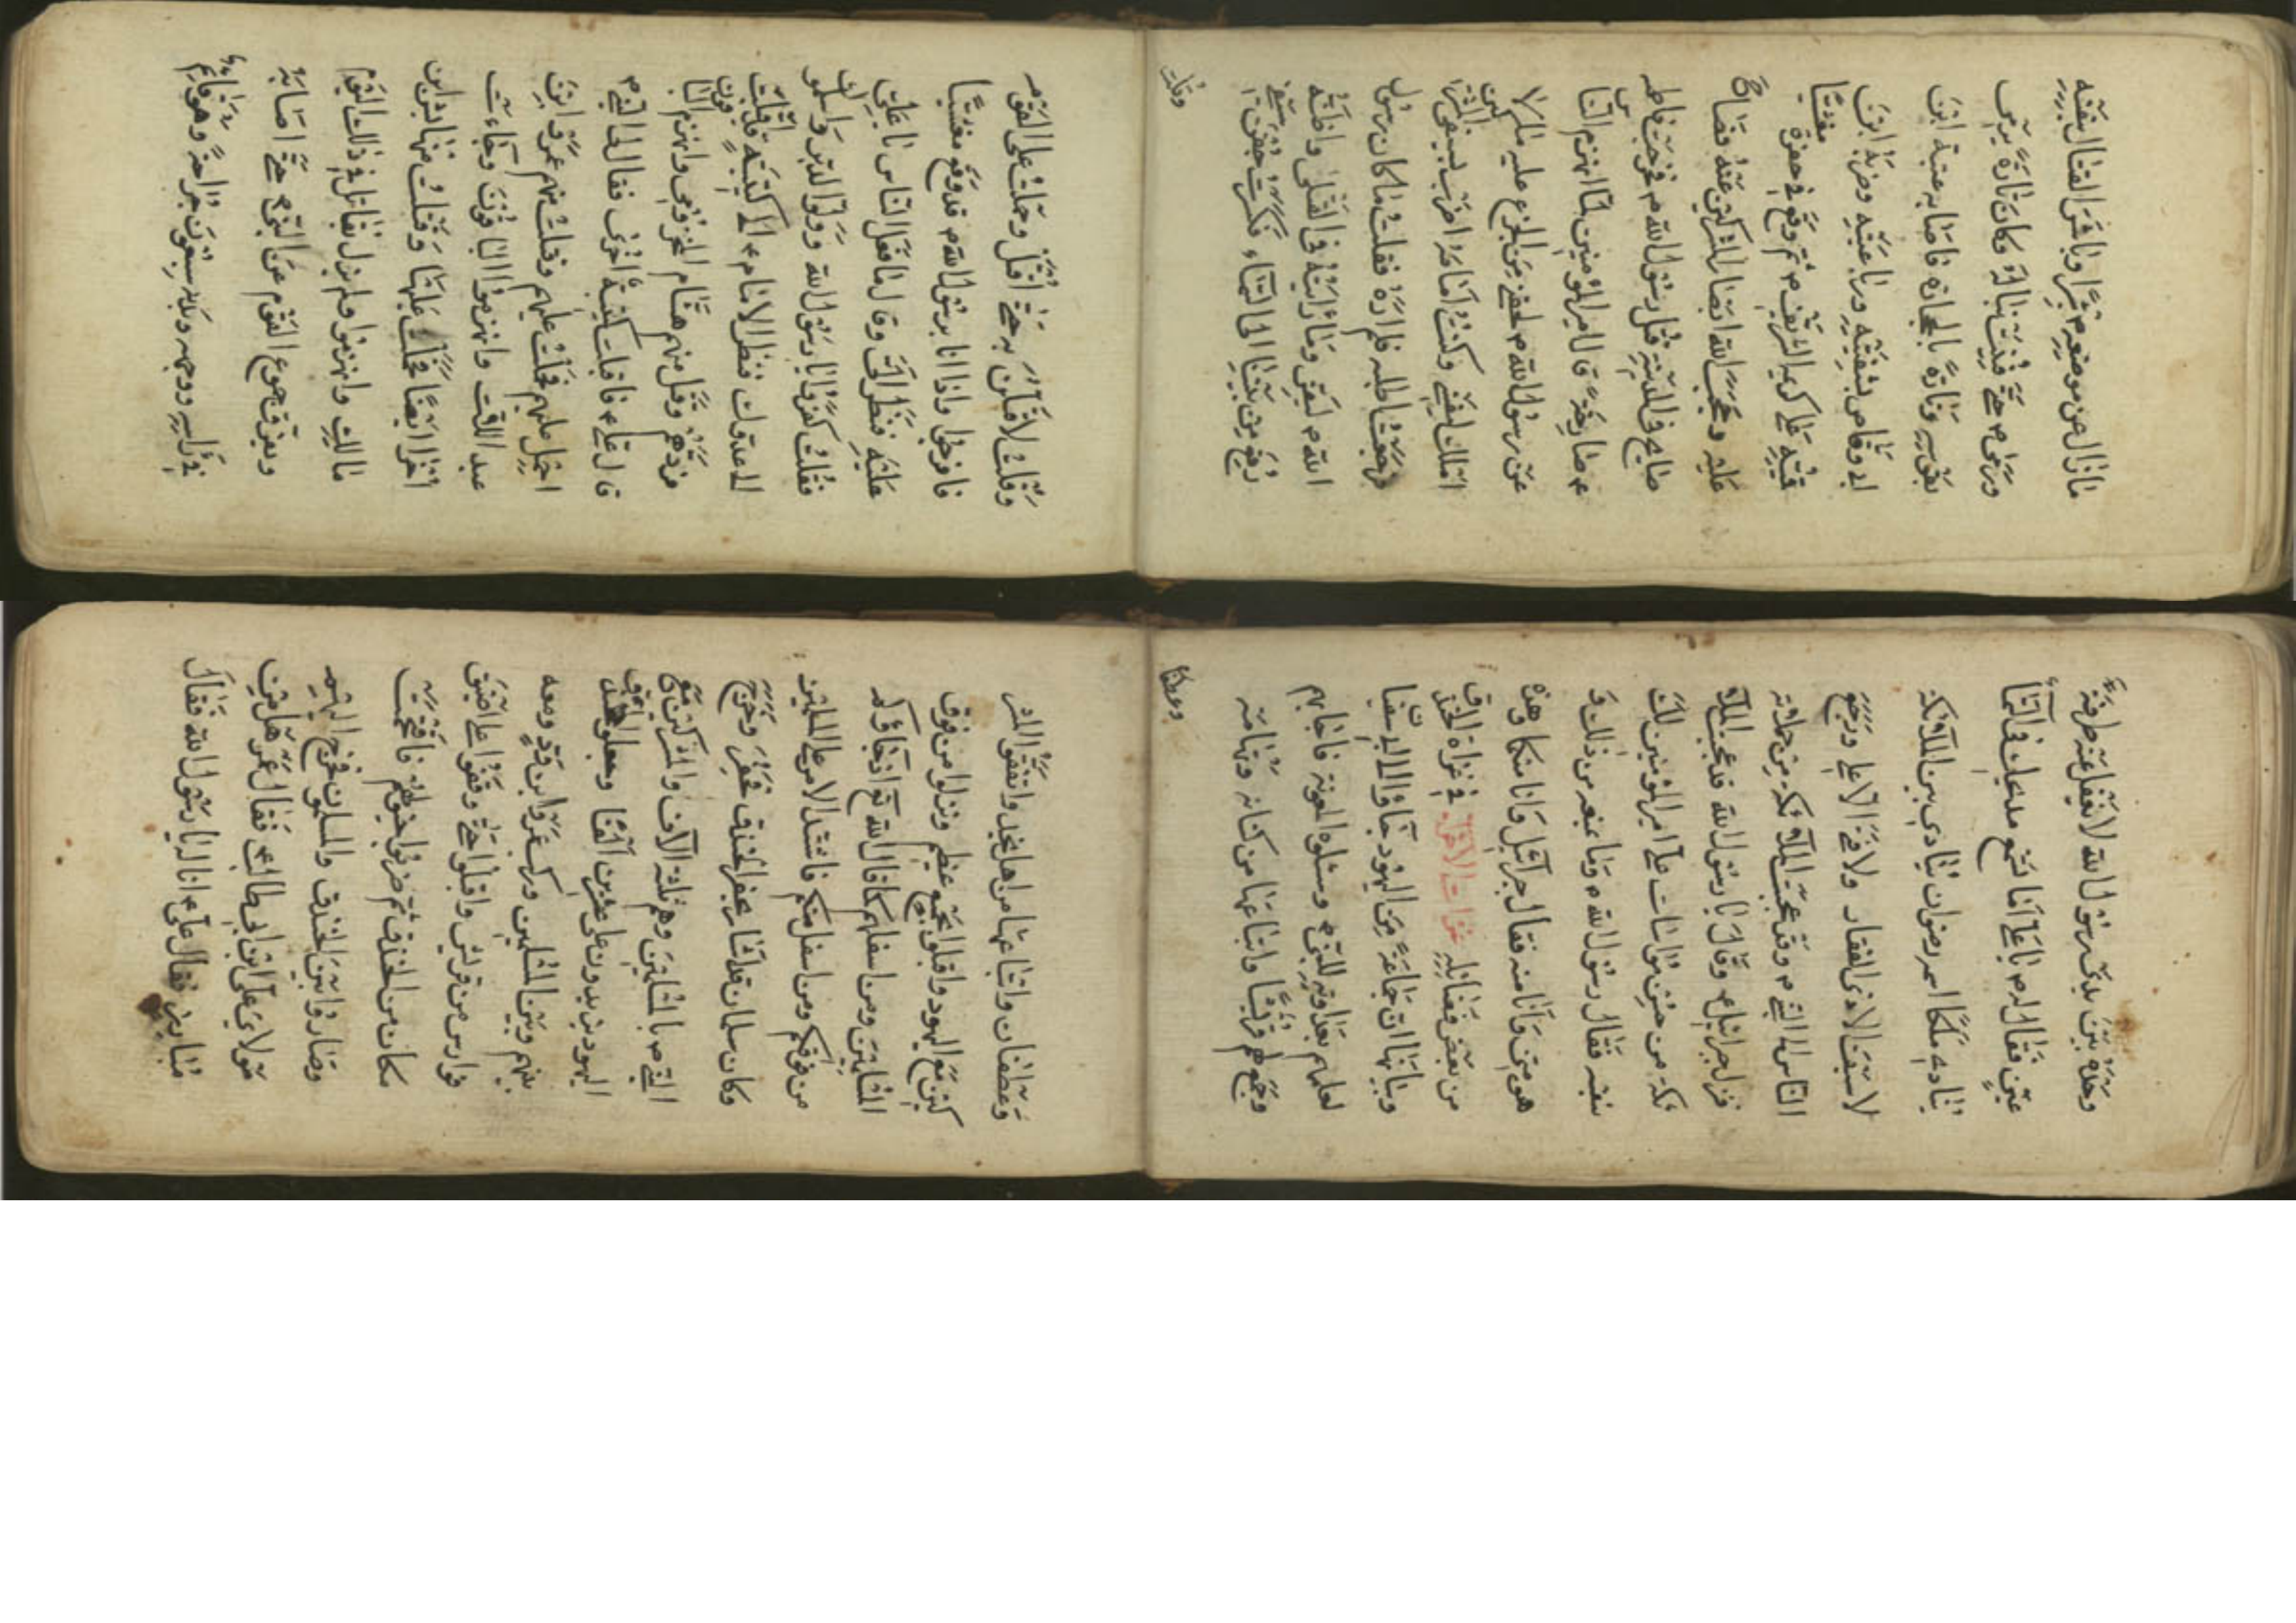 ما زال عن موضعه شبرا وباشر القتال بنفسه
ورمى ص حتى فنيت نباله وكان تارة يرمى
بقوسه وتارة بالحجارة فاصابه عتبة ابن
ابي وقاص بشفتيه ورباعيته وضربه ابن
قميه على كريمه الشريف ص ثم وقع في حفرة مغشيا
عليه وحجب الله ابصار المشركين عنه فصاح
صايح في المدينة قتل رسول الله ص فخرجت فاطمه
ع صارخة قال امير المؤمنين لما انهزم الناس
عن رسول الله ص لحقني من الجزع عليه ما لا
املك نفسي وكنت امامه اضرب بسيفي المشركين
فرجعت اطلبه فلم اره فقلت ما كان رسول
الله ص ليفر وما رايته في القتلى واظنه
رفع من بيننا الى السماء فكسرت جفن سيفي
وقلت
وقلت لاقاتلن به حتى اقتل وحملت على القوم
فافرجوا واذا انا برسول الله ص قد وقع مغشيا
عليه فنظر الي وقال ما فعل الناس يا علي
فقلت كفروا يا رسول الله وولوا الدبر واسلموك
الى عدوك فنظر الامام ع الى كتيبة قد اقبلت
فردهم وقتل منهم هشام المخزومي وانهزم الباقون
قال علي ع فاقبلت كتيبة اخرى فقال لي النبي ص
احمل عليهم فحملت عليهم وقتلت منهم عمرو ابن
عبد الله وانهزموا الباقون وجاءت
اخرا ايضا فحملت عليها وقتلت منها بشر ابن
مالك وانهزموا ولم يزل يقاتل في ذلك اليوم
ويفرق جموع القوم عن النبي ص حتى اصابه
في راسه ووجهه ويديه سبعون جراحة وهو قايم
وحده بين يدي رسول الله لا يغفل عنه طرفة
عين فقال له ص يا علي اما تسمع مديحك في السماء
ينادي ملكا اسمه رضوان ينادي بين الملائكة
لا سيف الا ذو الفقار ولا فتى الا علي ورجع
الناس الى النبي ص وقد عجبت الملائكة من حملاته
فنزل جبرائيل ع وقال يا رسول الله قد عجبت الملا
ئكة من حسن مواسات علي امير المؤمنين لك
بنفسه فقال رسول الله ص وما يمنعه من ذلك و
هو مني وانا منه فقال جبرائيل وانا منكما وهذه
من بعض فضائله غزات الاخرى في غزاة الخندق
وبيانها ان جماعة من اليهود جاؤا الى ابي سفيان
لعلمهم بعداوته للنبي ص وسئلوه المعونة فاجابهم
وجمع لهم قريشا واتباعها من كنانه وتهامة
وغطفان
وغطفان واتباعها من اهل نجد واتفقوا المشر
كين مع اليهود واقبلوا بجمع عظيم ونزلوا من فوق
المسلمين ومن اسفلهم كما قال الله تع اذ جاؤكم
من فوقكم ومن اسفل منكم فاشتد الامر على المسلمين
وكان سلمان قد اشار بحفر الخندق فحفر وخرج
النبي ص بالمسلمين وهم ثلثة آلاف والمشركين مع
اليهود يزيدون على عشرين الفا وجعلوا الخندق
بينهم وبين المسلمين وركب عمرو ابن ود ومعه
فوارس من قريش واقبلوا حتى وقفوا على اضيق
مكان من الخندق ثم ضربوا خيولهم فاقتحمت
وصاروا بين الخندق والمسلمون فخرج اليهم
مولاي علي ابن ابي طالب ع فقال عمرو هل من
مبارز فقال علي ع انا له يا رسول الله فقال